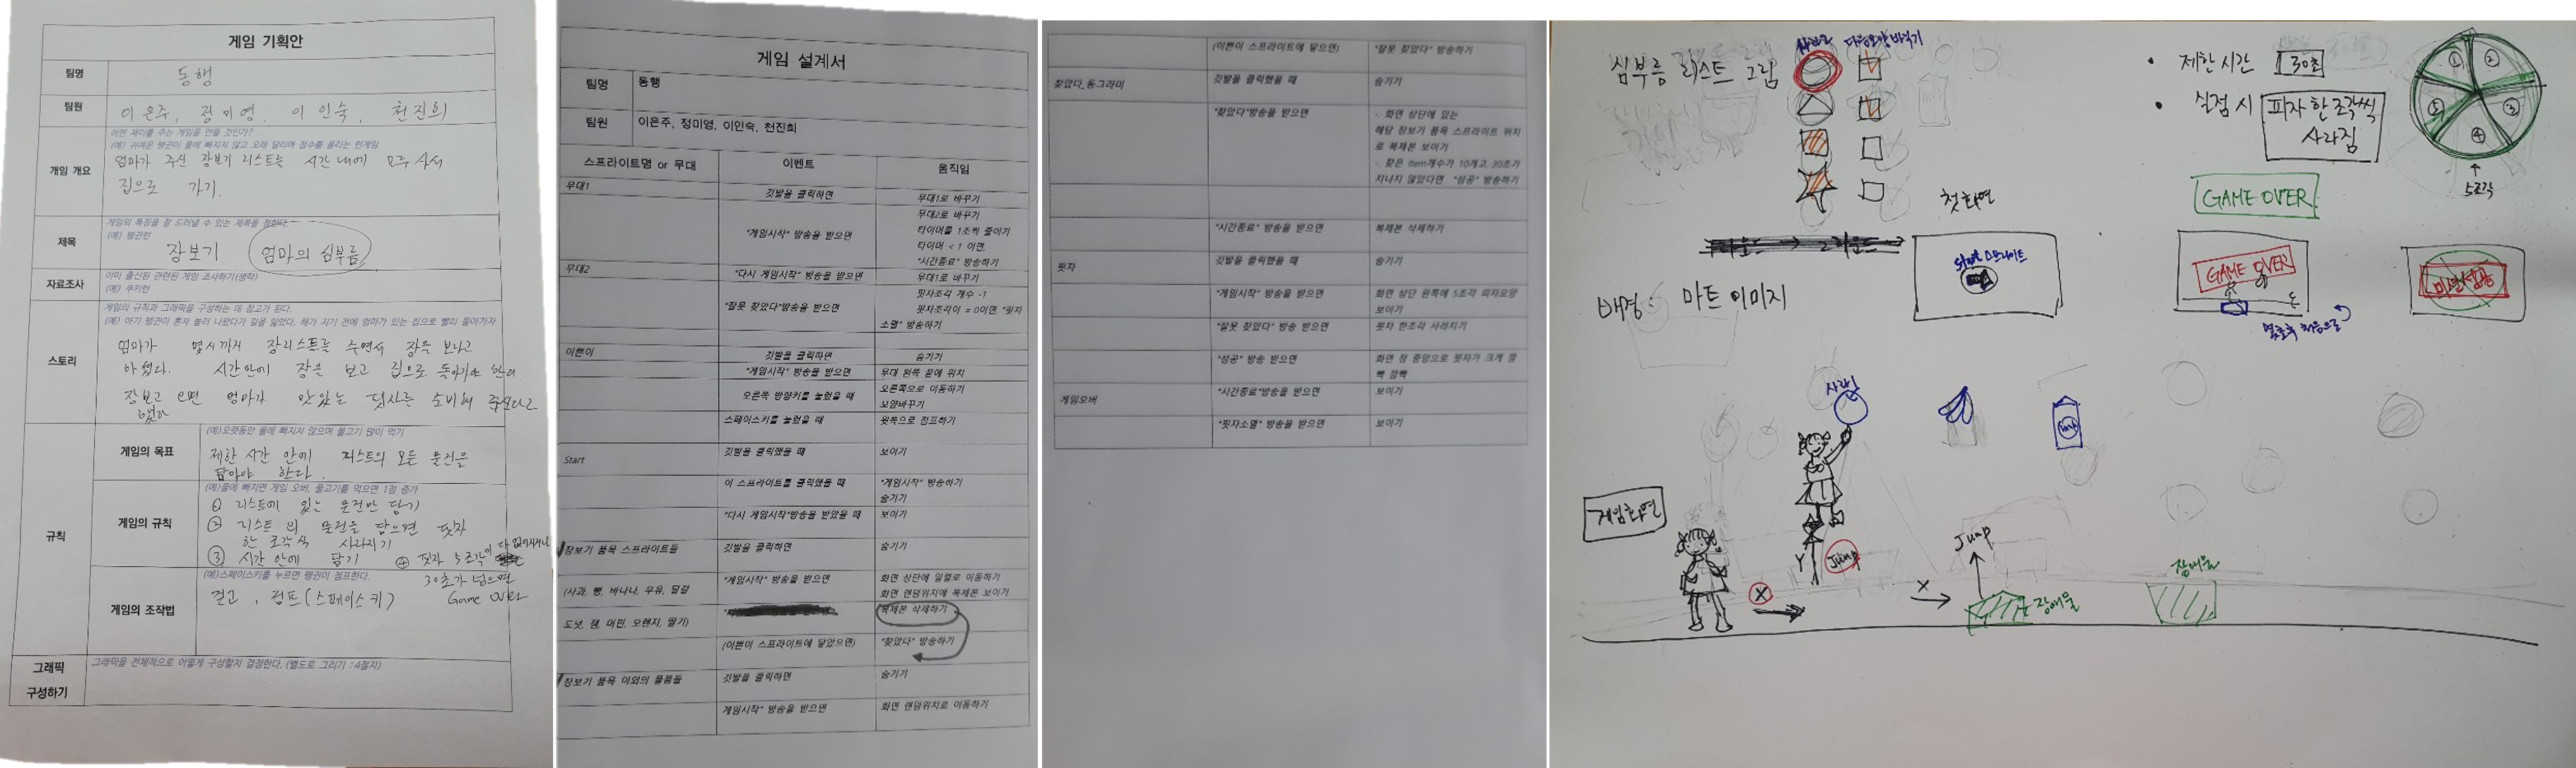 게임 기획안
팀명
동행
팀원
이은주, 정미영, 이인숙, 천진희
게임 개요
어떤 재미를 주는 게임을 만들 것인가?
(예) 귀여운 펭귄이 물에 빠지지 않고 오래 달리며 점수를 올리는 런게임
엄마가 주신 장보기 리스트를 시간 내에 모두 사서
집으로 가기.
제목
게임의 특징을 잘 드러낼 수 있는 제목을 정한다.
(예) 펭귄런
장보기 엄마의 심부름
자료조사
이미 출신된 관련된 게임 조사하기(생략)
(예) 쿠키런
스토리
게임의 규칙과 그래픽을 구성하는 데 참고가 된다.
(예) 아기 펭귄이 혼자 놀러 나왔다가 길을 잃었다. 해가 지기 전에 엄마가 있는 집으로 빨리 돌아가자
엄마가 몇시까지 장리스트를 주면서 장을 보라고
하셨다. 시간안에 장을 보고 집으로 돌아가야 한다.
장보고 오면 엄마가 맛있는 핏자를 준비해 준다고
했다
규칙
게임의 목표
(예)오랫동안 물에 빠지지 않으며 물고기 많이 먹기
제한 시간 안에 리스트의 모든 물건을
담아야 한다.
게임의 규칙
(예)물에 빠지면 게임 오버, 물고기를 먹으면 1점 증가
① 리스트에 있는 물건만 담기
② 리스트 외 물건을 담으면 핏자
한 조각씩 사라지기
③ 시간 안에 담기 ④ 핏자 5조각이 다 없어지거나
30초가 넘으면
Game over
게임의 조작법
(예)스페이스키를 누르면 펭귄이 점프한다.
걷고, 점프(스페이스키)
그래픽
구성하기
그래픽을 전체적으로 어떻게 구성할지 결정한다. (별도로 그리기 : 4절지)
게임 설계서
팀명
동행
팀원
이은주, 정미영, 이인숙, 천진희
스프라이트명 or 무대 이벤트 움직임
무대1
깃발을 클릭하면 무대1로 바꾸기
"게임시작" 방송을 받으면
무대2로 바꾸기
타이머를 1초씩 줄이기
타이머 < 1 이면,
"시간종료" 방송하기
무대2
"다시 게임시작" 방송을 받으면 무대1로 바꾸기
"잘못 찾았다"방송을 받으면
핏자조각 개수 -1
핏자조각이 = 0이면, "핏자
소멸" 방송하기
이쁜이
깃발을 클릭하면 숨기기
"게임시작" 방송을 받으면 무대 왼쪽 끝에 위치
오른쪽 방향키를 눌렀을 때 오른쪽으로 이동하기
모양바꾸기
스페이스키를 눌렀을 때 윗쪽으로 점프하기
Start
깃발을 클릭했을 때 보이기
이 스프라이트를 클릭했을 때 "게임시작" 방송하기
숨기기
"다시 게임시작"방송을 받았을 때 보이기
장보기 품목 스프라이트들
깃발을 클릭하면 숨기기
(사과, 빵, 바나나, 우유, 달걀
도넛, 잼, 머핀, 오렌지, 딸기)
"게임시작" 방송을 받으면 화면 상단에 일렬로 이동하기
화면 랜덤위치에 복제본 보이기
복제본 삭제하기
(이쁜이 스프라이트에 닿았으면) "찾았다" 방송하기
장보기 품목 이외의 물품들
깃발을 클릭하면 숨기기
게임시작" 방송을 받으면 화면 랜덤위치로 이동하기
(이쁜이 스프라이트에 닿으면) "잘못 찾았다" 방송하기
찾았다_동그라미
깃발을 클릭했을 때 숨기기
"찾았다"방송을 받으면
-. 화면 상단에 있는
해당 장보기 품목 스프라이트 위치
로 복제본 보이기
-. 찾은 item개수가 10개고, 30초가
지나지 않았다면 "성공" 방송하기
"시간종료" 방송을 받으면 복제본 삭제하기
핏자
깃발을 클릭했을 때 숨기기
"게임시작" 방송을 받으면 화면 상단 왼쪽에 5조각 피자모양
보이기
"잘못 찾았다" 방송 받으면 핏자 한조각 사라지기
"성공" 방송 받으면 화면 정 중앙으로 핏자가 크게 깜
빡 깜빡
게임오버
"시간종료"방송을 받으면 보이기
"핏자소멸"방송을 받으면 보이기
심부름 리스트 그림
• 제한시간 30초
• 실점 시 피자 한조각씩
사라짐
① ② ③ ④ ⑤
5조각
GAME OVER
첫화면
start 스프라이트
GAME OVER
배경 : 마트 이미지
사라짐
milk
게임화면
Jump
X
X
Jump
장애물
장애물